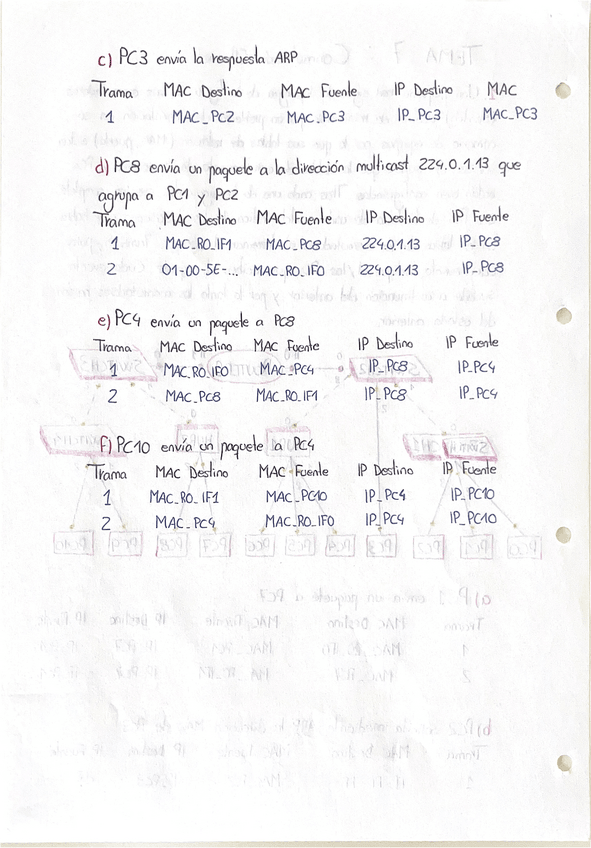 c) PC3 envía la respuesta ARP
Trama MAC Destino MAC Fuente IP Destino MAC
1 MAC_PC2 MAC_PC3 IP_PC3 MAC_PC3
d) PC8 envía un paquete a la dirección multicast 224.0.1.13 que
agrupa a PC1 y PC2
Trama MAC Destino MAC Fuente IP Destino IP Fuente
1 MAC_R0_IF1 MAC_PC8 224.0.1.13 IP_PC8
2 01-00-5E-... MAC_R0_IF0 224.0.1.13 IP_PC8
e) PC4 envía un paquete a PC8
Trama MAC Destino MAC Fuente IP Destino IP Fuente
1 MAC_R0_IF0 MAC_PC4 IP_PC8 IP_PC4
2 MAC_PC8 MAC_R0_IF1 IP_PC8 IP_PC4
f) PC10 envía un paquete a PC4
Trama MAC Destino MAC Fuente IP Destino IP Fuente
1 MAC_R0_IF1 MAC_PC10 IP_PC4 IP_PC10
2 MAC_PC4 MAC_R0_IF0 IP_PC4 IP_PC10